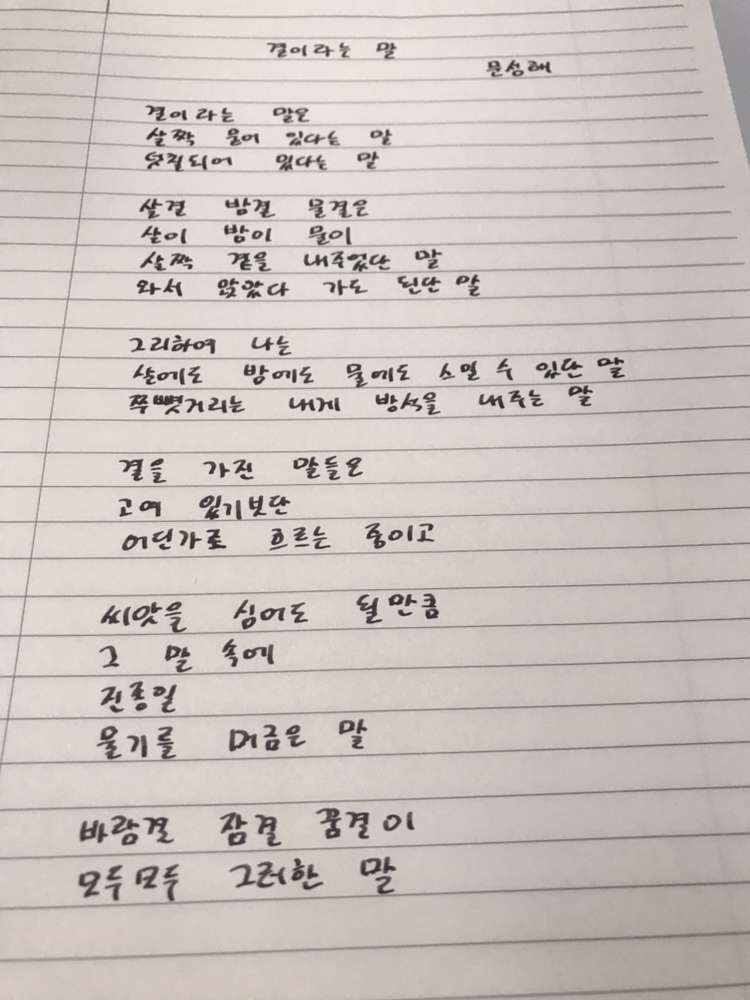 결이라는 말
문성해
결이라는 말은
살짝 묻어 있다는 말
덧칠되어 있다는 말
살결 밤결 물결은
살이 밤이 물이
살짝 곁을 내주었단 말
와서 앉았다 가도 된단 말
그리하여 나는
살에도 밤에도 물에도 스밀 수 있단 말
쭈뼛거리는 내게 방석을 내주는 말
결을 가진 말들은
고여 있기보단
어딘가로 흐르는 중이고
씨앗을 심어도 될만큼
그 말 속에
진종일
물기를 머금은 말
바람결 잠결 꿈결이
모두모두 그러한 말